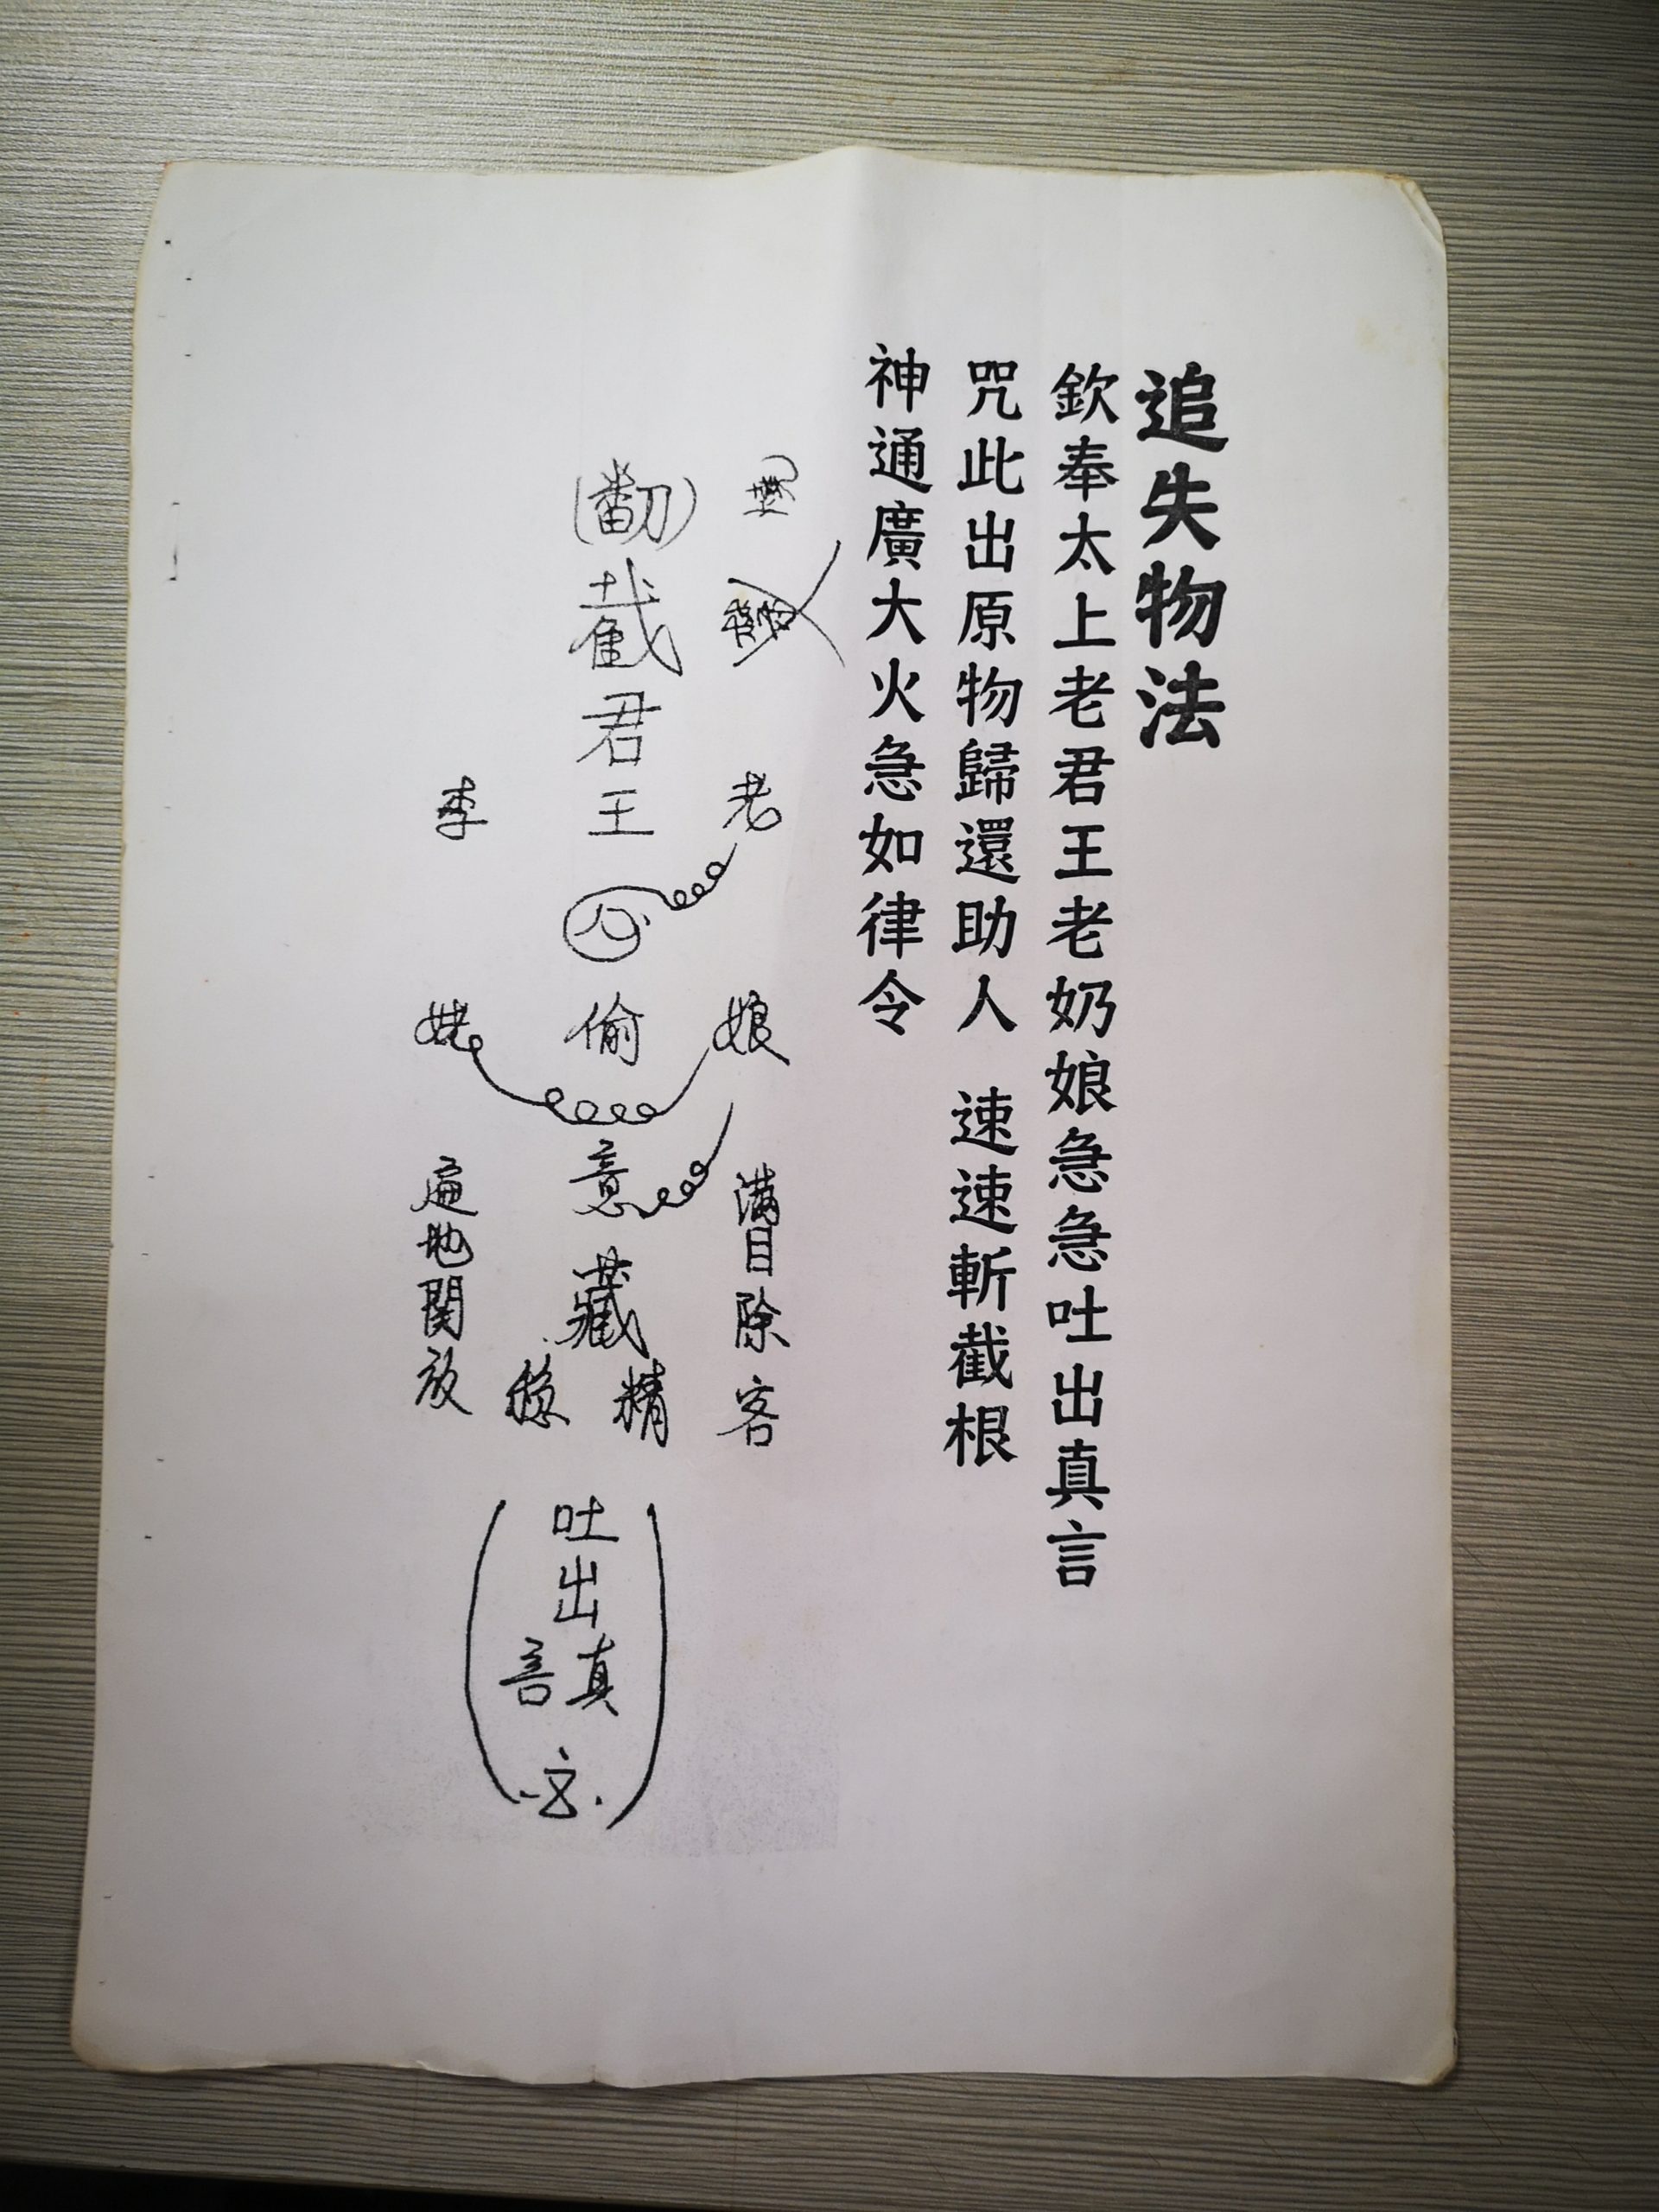 追失物法
欽奉太上老君王老奶娘急急吐出真言
咒此出原物歸還助人 速速斬截根
神通廣大火急如律令
老
娘
滿目除客
截君王
偷
意
藏
精
吐出真
言
李
姥
遍地関放